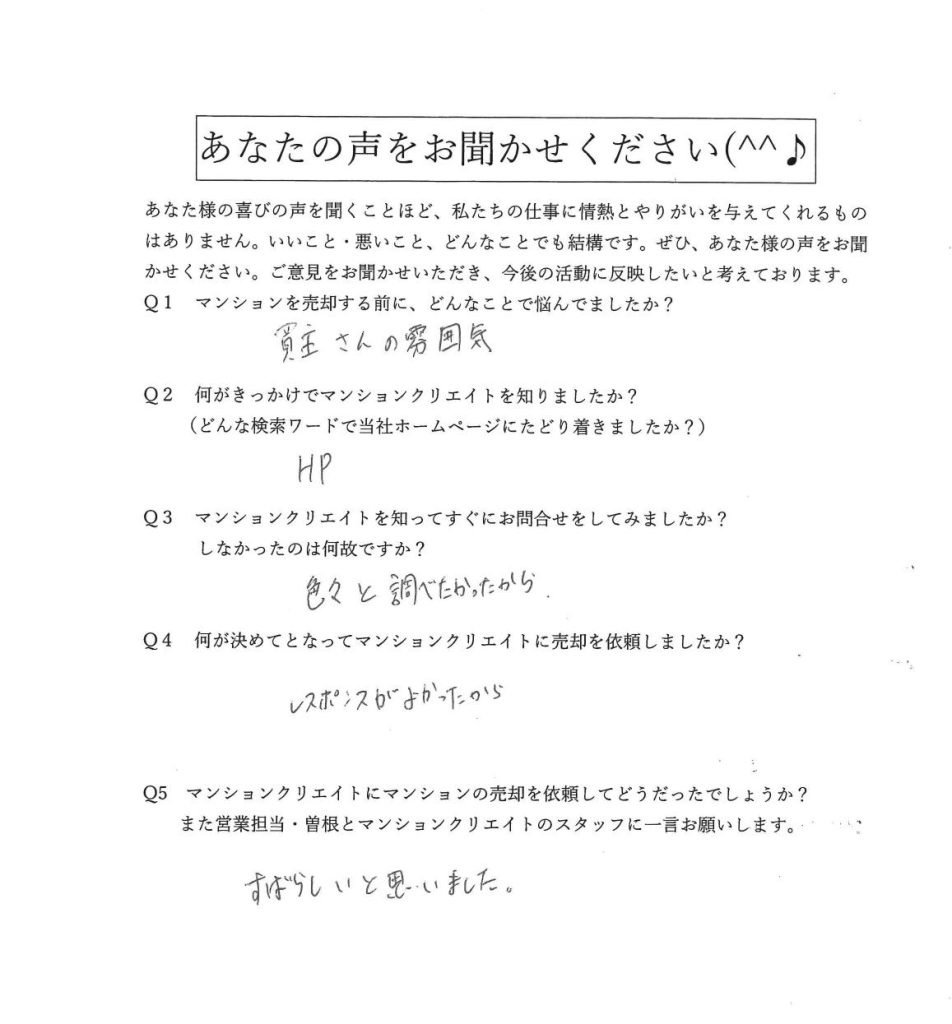 あなたの声をお聞かせください(^^♪
あなた様の喜びの声を聞くことほど、私たちの仕事に情熱とやりがいを与えてくれるもの
はありません。いいこと・悪いこと、どんなことでも結構です。ぜひ、あなた様の声をお聞
かせください。ご意見をお聞かせいただき、今後の活動に反映したいと考えております。
Q1　マンションを売却する前に、どんなことで悩んでましたか？
買主さんの雰囲気
Q2　何がきっかけでマンションクリエイトを知りましたか？
（どんな検索ワードで当社ホームページにたどり着きましたか？）
HP
Q3　マンションクリエイトを知ってすぐにお問合せをしてみましたか？
しなかったのは何故ですか？
色々と調べたかったから.
Q4　何が決めてとなってマンションクリエイトに売却を依頼しましたか？
レスポンスがよかったから
Q5　マンションクリエイトにマンションの売却を依頼してどうだったでしょうか？
また営業担当・曽根とマンションクリエイトのスタッフに一言お願いします。
すばらしいと思いました。